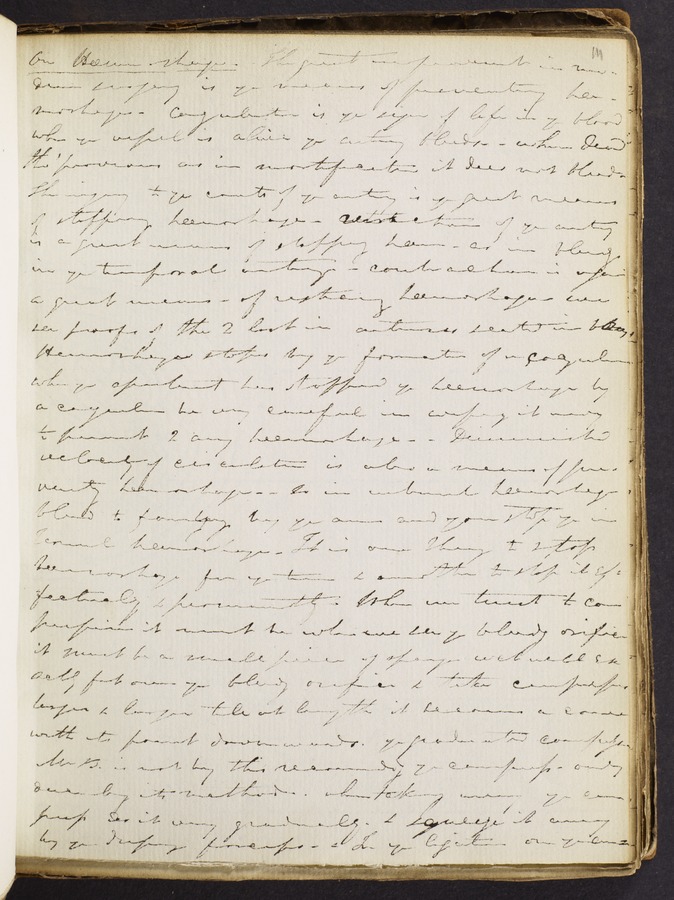 On Haemorrhage. The great improvement in mo-
dern surgery is ye means of preventing hae-
morrhage. Coagulation is ye sign of life in ye blood
when ye vessel is alive ye artery bleeds - when dead
the previous as in mortification it does not bleed -
The injury to ye coats of ye artery is ye great means
of stopping haemorrhage - retraction of ye artery
is a great means of stopping haem - as in bleedg
in ye temporal artery - contraction is again
a great means - of restraing haemorrhage we
see proofs of the 2 last in arteries seated in
Haemorrhage stops by ye formation of a coagulum
when ye apartment has stopped ye haemorrhage by
a coagulum be very careful in wiping it away
to prevent 2ary haemorrhage - - Diminished
velocity of circulation is also a means of pre-
venting haemorrhage - - So in internal haemorrhage
bleed to fainting by ye arm and you stop ye in
ternal haemorrhage - It is one thing to stop
haemorrhage for ye time & another to stop it ef-
fectually & permanently. When we trust to com
pression it must be when we see ye bleedg orifice
it must be a small piece of sponge wet well ex
actly put over ye bleedg orifice & then compress
larger & larger till at length it becomes a cone
with its point downwards. ye graduated compress
Mr B. is not by this recommendg ye compress only
describg its method. when taking away ye com
press do it very gradually & squeeze it away
by ye dressing forceps - In ye ligature on ye